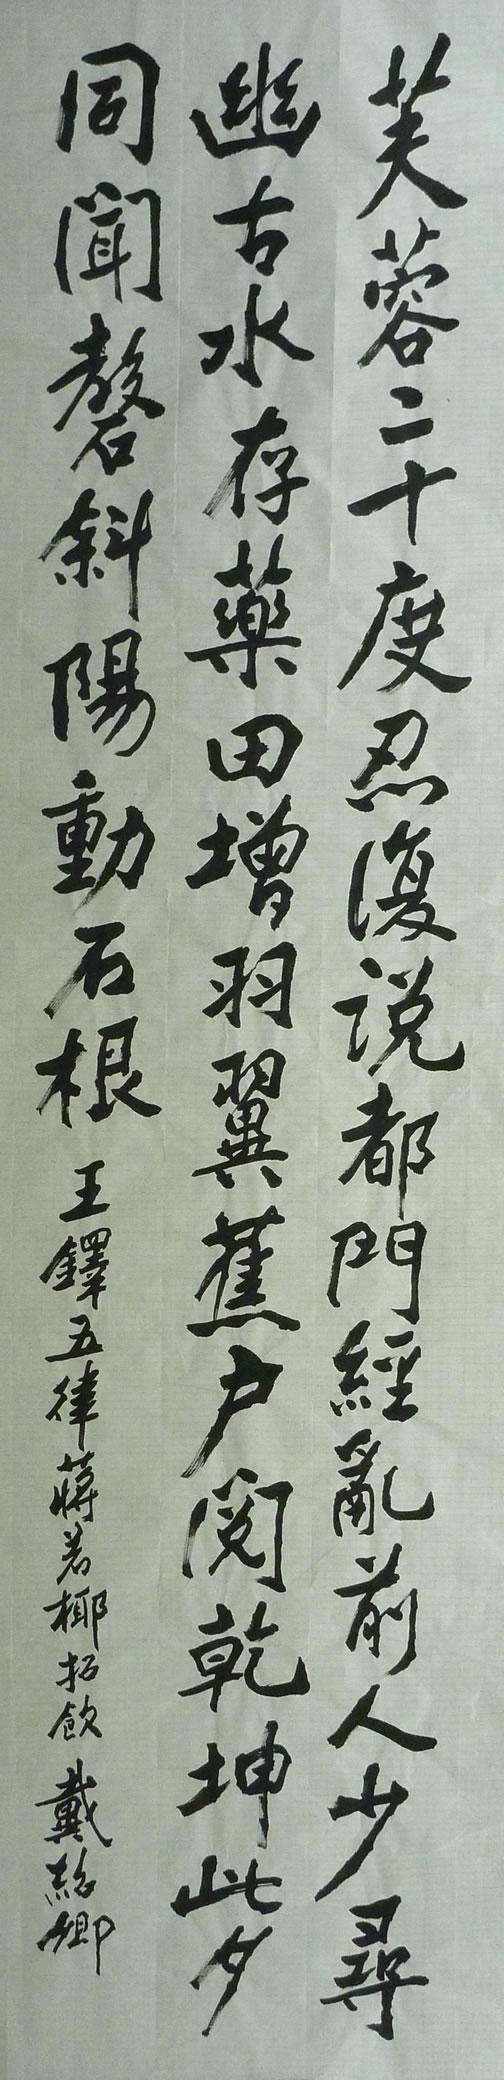 芙蓉二十度忍復说都門經亂前人少尋
幽古水存藥田增羽翼蕉户阅乾坤此夕
同聞磬斜陽動石根 王鐸五律蔣若椰招飲 戴紹卿